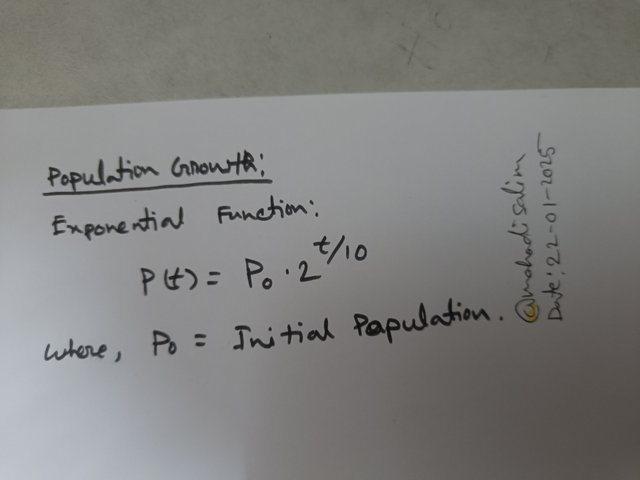 Population Growth:
Exponential Function:
P(t) = P₀ · 2^{t/10}
where, P₀ = Initial Papulation.
@mahadisalim
Date: 22-01-2025